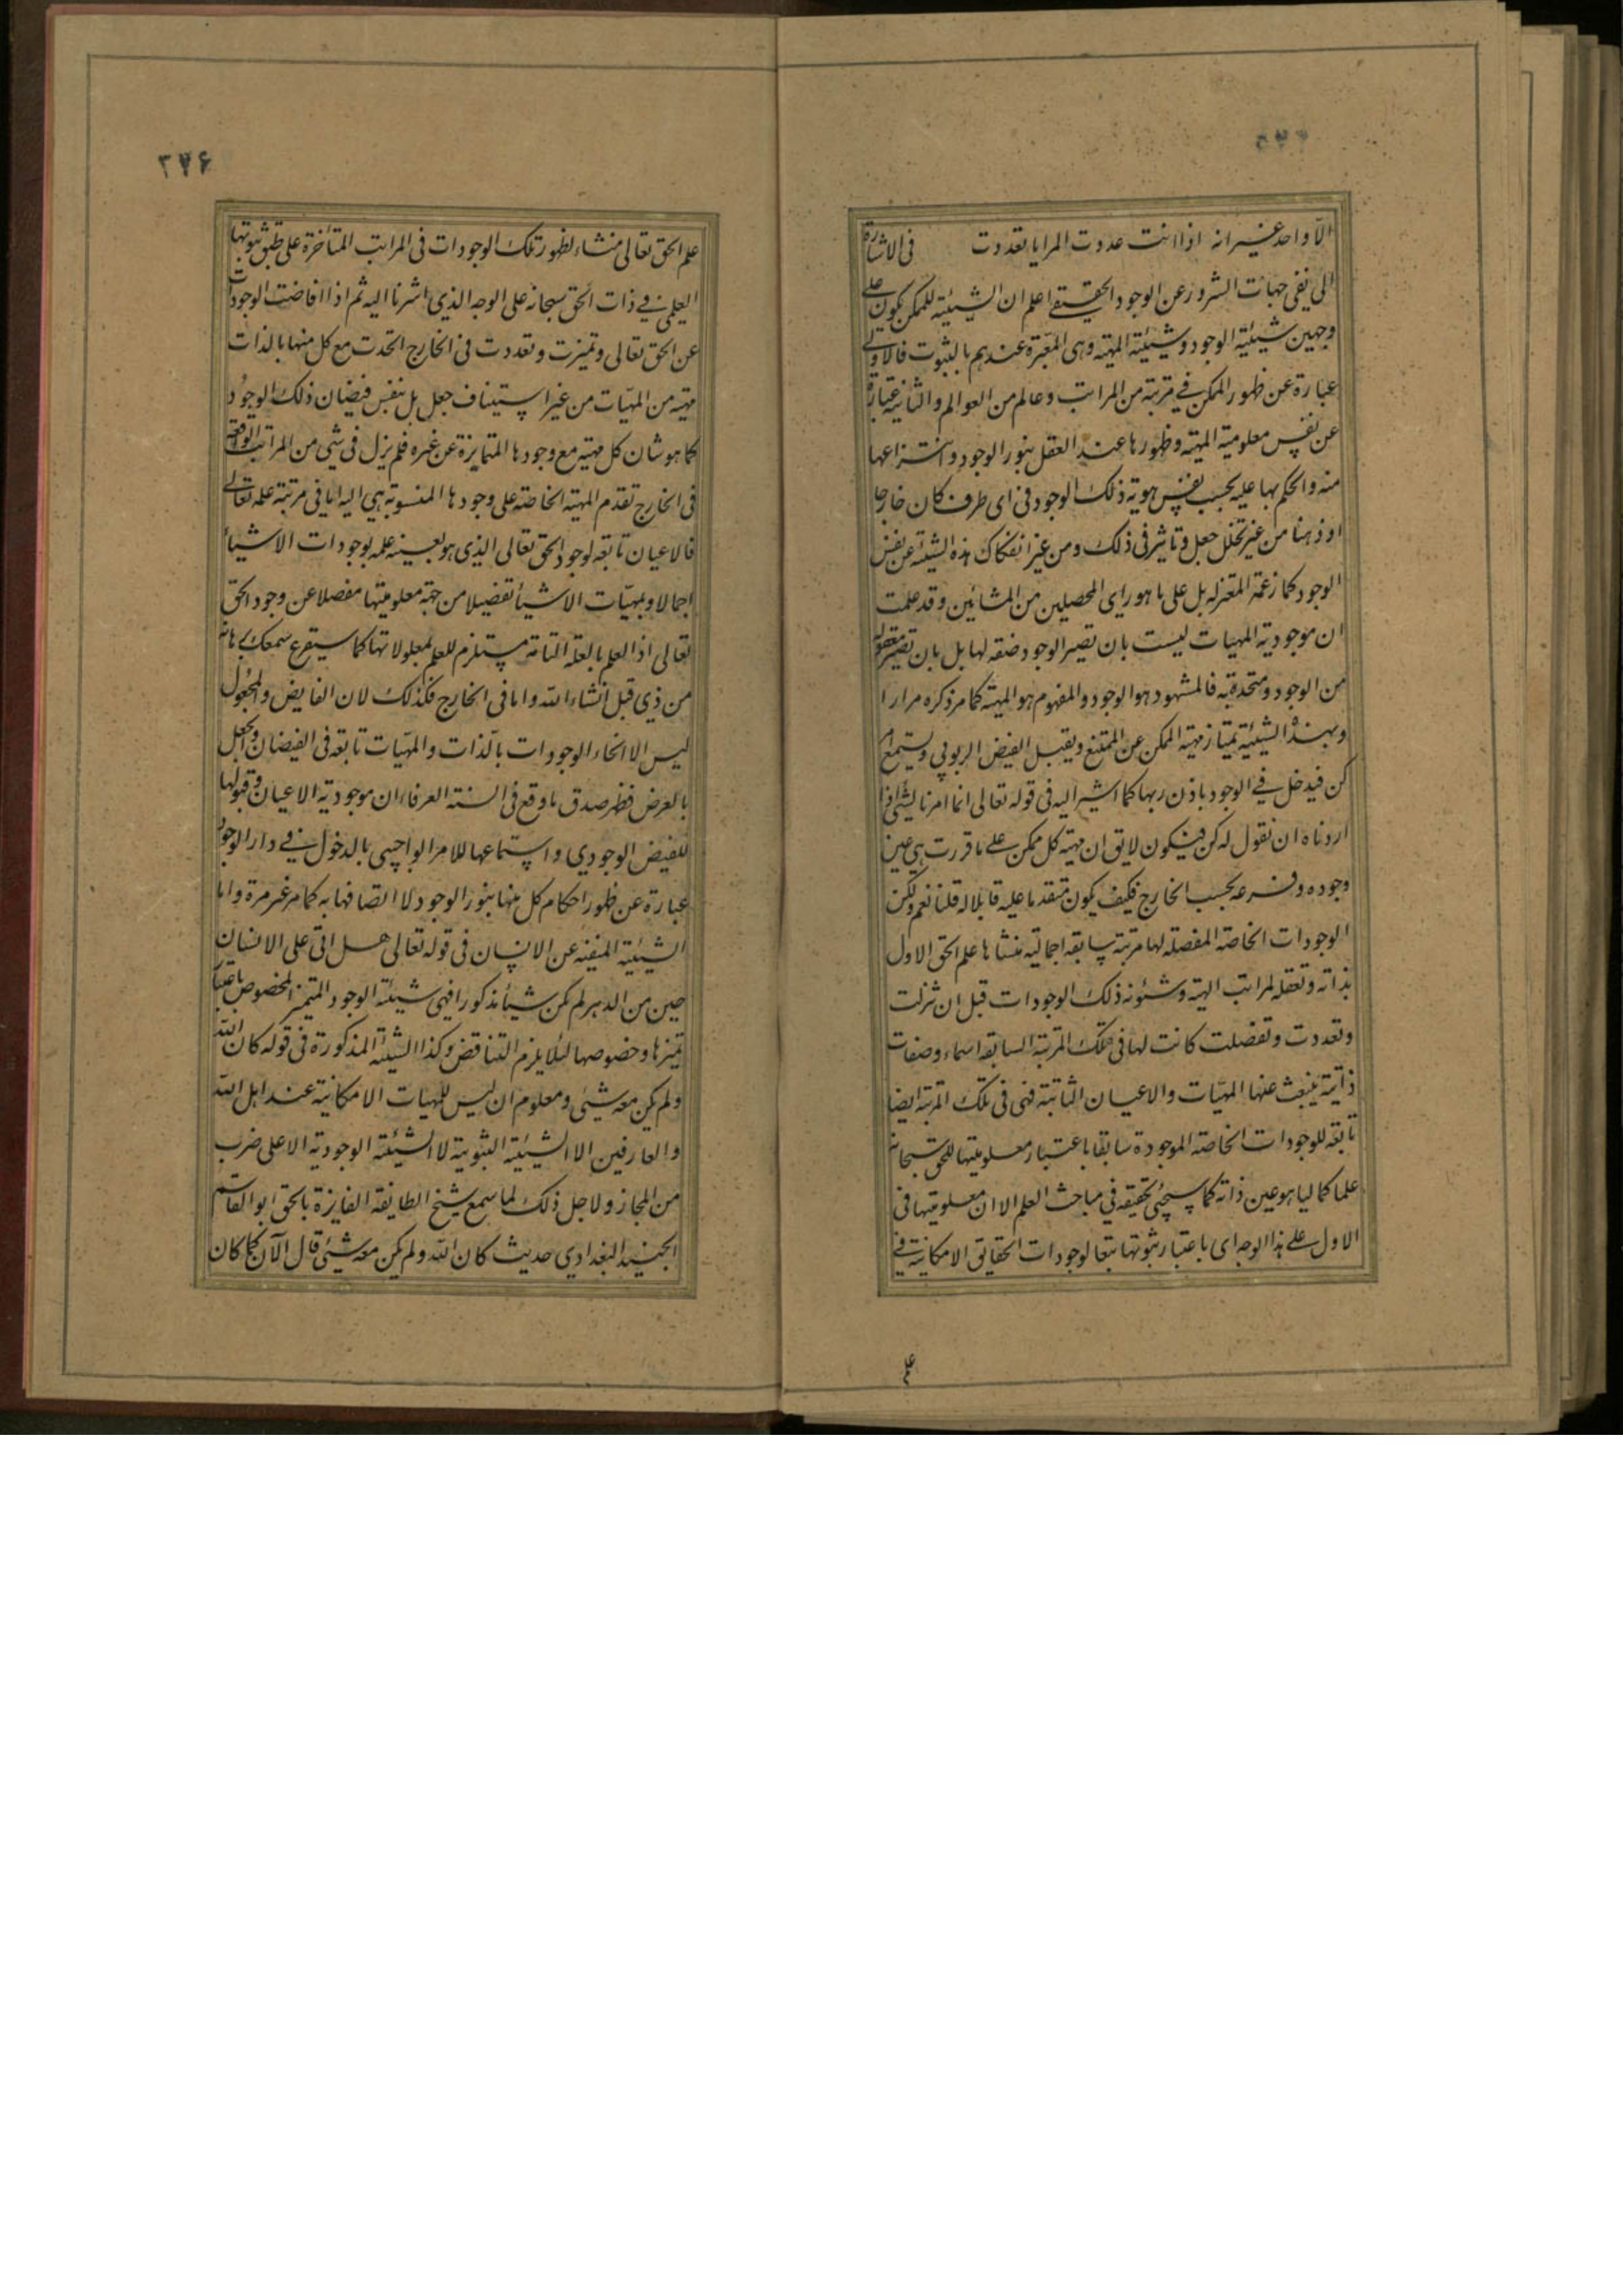 الا واحد غير انه اذا انت عددت المرايا تعددت في الاشارة
الى نفى جهات الشرور عن الوجود الحقيقے اعلم ان الشيئية للممكن يكون علے
وجهين شيئية الوجود و شيئية المهية وهى المعبرة عندهم بالثبوت فالاولے
عبارة عن ظهور الممكن فے مرتبة من المراتب وعالم من العوالم والثانية عبارة
عن نفس معلومية المهية وظهورها عند العقل بنور الوجود وانتزاعها
منه والحكم بها عليه بحسب نفس هوية ذلك الوجود فى اى ظرف كان خارجا
او ذهنا من غير تخلل جعل و تاثير فى ذلك ومن غير انفكاك هذه الشيئية عن نفس
الوجود كما زعمة المعتزله بل على ما هو راى المحصلين من المشائين وقد علمت
ان موجودية المهيات ليست بان تصير الوجود صفة لها بل بان تصير معقولة
من الوجود ومتحدة به فالمشهود هو الوجود والمفهوم هو المهية كما مر ذكره مرارا
وبهذه الشيئية تمتاز مهية الممكن عن الممتنع ويقبل الفيض الربوبي ويستمع امر
كن فيدخل فے الوجود باذن ربها كما اشير اليه فى قوله تعالى انما امرنا لشئ اذا
اردناه ان نقول له كن فيكون لايق ان مهية كل ممكن علے ما قررت هى عين
وجوده وفرعه بحسب الخارج فكيف يكون متقدما عليه قابلا له قلنا نعم ولكن
الوجودات الخاصة المفصله لها مرتبة سابقه اجمالية منشاها علم الحق الاول
بذاته وتعقله لمراتب الهية وشئونه ذلك الوجودات قبل ان نزلت
وتعددت وتفصلت كانت لها فى تلك المرتبة السابقه اسماء وصفات
ذاتية ينبعث عنها المهيات والاعيان الثابتة فهى فى تلك المرتبة ايضا
تابعة للوجودات الخاصة الموجودة سابقا باعتبار معلوميتها للحق سبحانه
علما كماليا هو عين ذاته كما سيجئ تحقيقه فى مباحث العلم الا ان معلوميتها فى
الاول علے هذا الوجه اى باعتبار ثبوتها تبعا لوجودات الحقائق الامكانية فے
علم
۳۷۶
علم الحق تعالى منشاء لظهور تلك الوجودات فى المراتب المتأخرة على طبق ثبوتها
العلمى فے ذات الحق سبحانه على الوجه الذى اشرنا اليه ثم اذا افاضت الوجودات
عن الحق تعالى وتميزت وتعددت فى الخارج اتحدت مع كل منها بالذات
مهية من المهيات من غير استيناف جعل بل بنفس فيضان ذلك الوجود
كما هو شان كل مهية مع وجودها المتمايزة عن غيره فلم يزل فى شئ من المراتب الواقعة
فى الخارج تقدم المهية الخاصة على وجودها المنسوبة هى اليه اما فى مرتبة علمه تعالے
فالاعيان تابعة لوجود الحق تعالى الذى هو بعينه علمه بوجودات الاشياء
اجمالا وبمهيات الاشياء تفصيلا من جهة معلوميتها مفصلا عن وجود الحق
تعالى اذ العلم بالعلة التامة مستلزم للعلم بمعلولاتها كما سيقرع سمعك برهانه
من ذي قبل انشاء الله واما فى الخارج فكذلك لان الفايض والمجعول
ليس الا انحاء الوجودات بالذات والمهيات تابعة فى الفيضان والجعل
بالعرض فظهر صدق ما وقع فى السنة العرفاء ان موجودية الاعيان وقبولها
للفيض الوجودي واستماعها للامر الواجبى بالدخول فے دار الوجود
عبارة عن ظهور احكام كل منها بنور الوجود لا اتصافها به كما مر غير مرة واما
الشيئية المنفية عن الانسان فى قوله تعالى هل اتى على الانسان
حين من الدهر لم يكن شيأ مذكورا فهى شيئية الوجود المتميز المخصوص باعتبار
تميزها وخصوصها لئلا يلزم التناقض وكذا الشيئية المذكورة فى قوله كان الله
ولم يكن معه شئ ومعلوم ان ليس للمهيات الامكانية عند اهل الله
والعارفين الا الشيئية الثبوتية لا الشيئية الوجودية الا على ضرب
من المجاز ولاجل ذلك لما سمع شيخ الطايفة الفايزة بالحق ابو القاسم
الجنيد البغدادي حديث كان الله ولم يكن معه شئ قال الآن كما كان